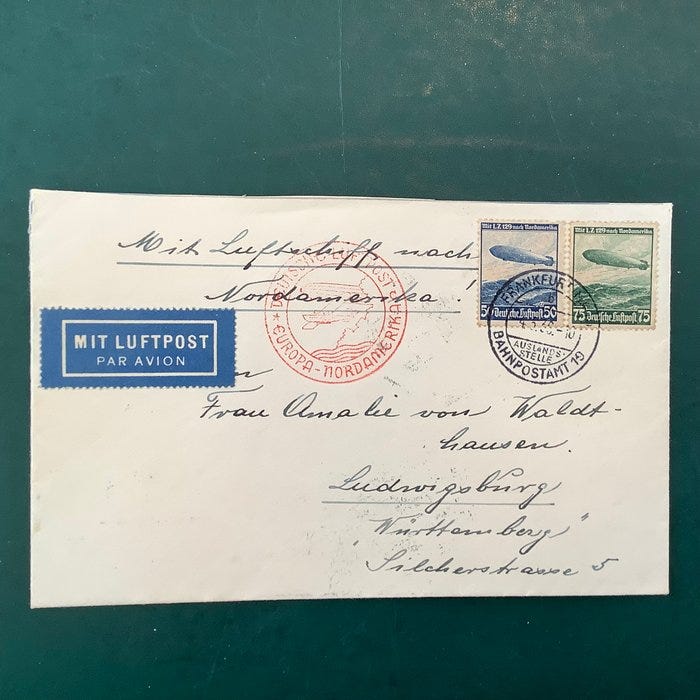 Mit Luftschiff nach
Nordamerika!
Mit L.Z. 129 nach Nordamerika
50 Deutsche Luftpost 50
Mit L.Z. 129 nach Nordamerika
75 Deutsche Luftpost 75
DEUTSCHE LUFTPOST
EUROPA-NORDAMERIKA
FRANKFURT
AUSLANDS-
STELLE
BAHNPOSTAMT 19
MIT LUFTPOST
PAR AVION
Frau Amalie von Waldt-
hausen.
Ludwigsburg
"Württemberg"
Silcherstrasse 5